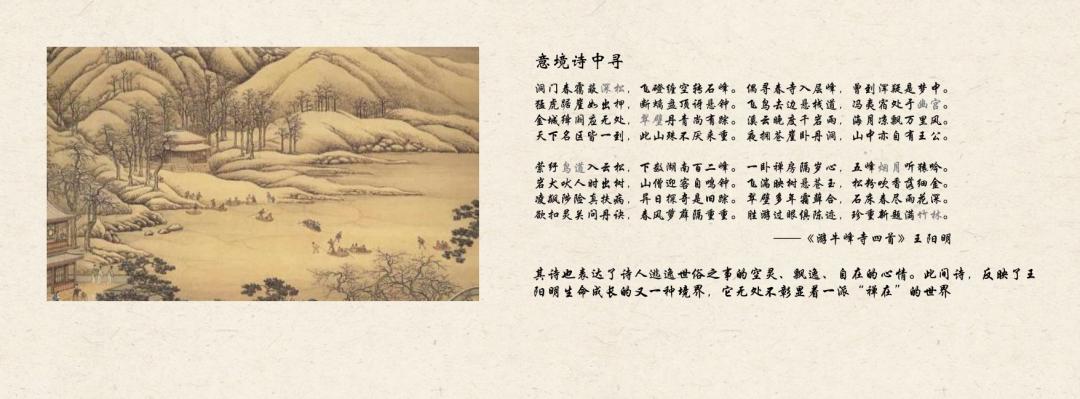 意境诗中寻
洞门春霭蔽深松，飞磴缠空转石峰。 偶寻春寺入层峰，曾到浑疑是梦中。
猛虎踞崖如出柙，断螭盘顶讶悬钟。 飞鸟去边悬栈道，冯夷宿处予幽宫。
金城绛阙应无处，翠壁丹青尚有踪。 溪云晚度千岩雨，海月凉飘万里风。
天下名区皆一到，此山殊不厌来重。 夜拥苍崖卧丹洞，山中亦自有王公。
萦纡鸟道入云松，下数湖南百二峰。 一卧禅房隔岁心，五峰烟月听猿吟。
岩犬吠人时出树，山僧迎客自鸣钟。 飞湍映树悬苍玉，松粉吹香落细金。
凌飙陟险真扶病，异日探奇是旧踪。 翠壁多年霜藓合，石床春尽雨花深。
欲扣灵关问丹诀，春风萝薜隔重重。 胜游过眼俱陈迹，珍重新题满竹林。
——《游牛峰寺四首》王阳明
其诗也表达了诗人逃逸世俗之事的空灵、飘逸、自在的心情。此间诗，反映了王
阳明生命成长的又一种境界，它无处不彰显着一派“禅在”的世界